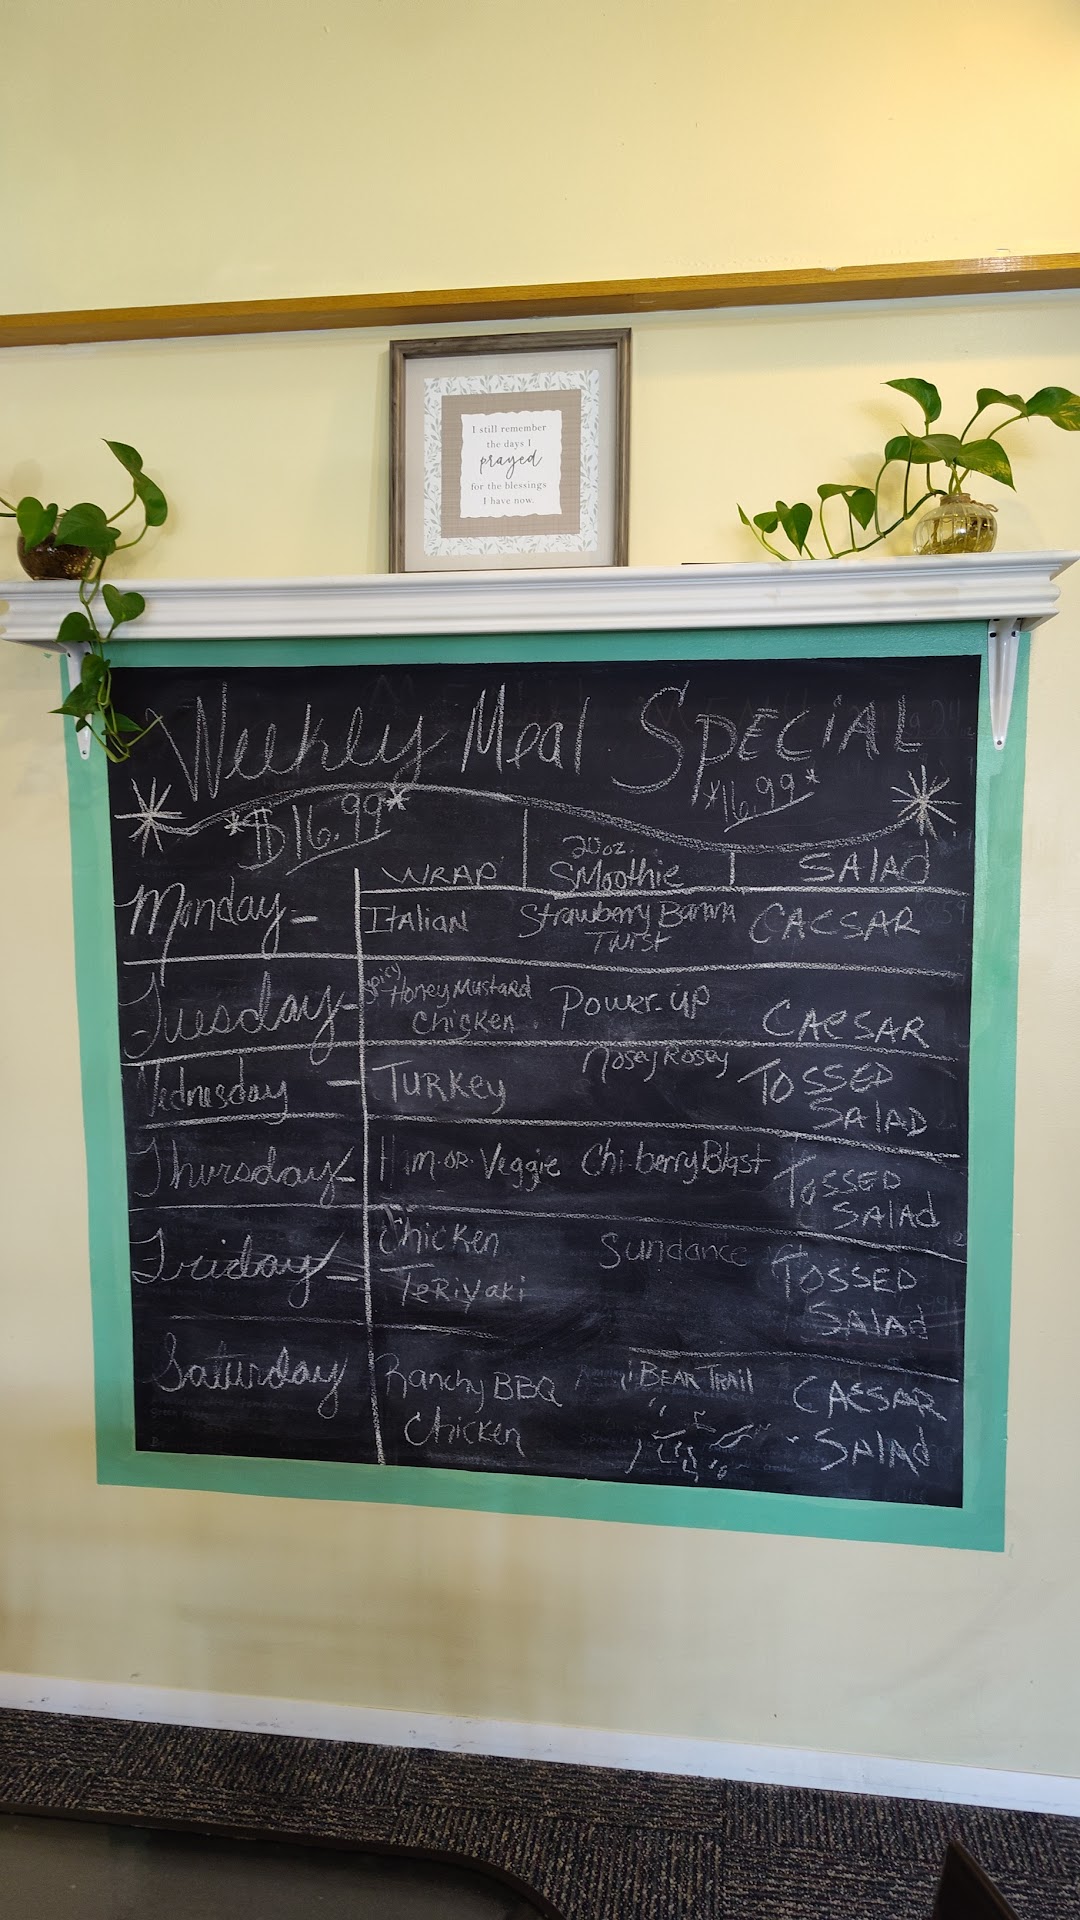 I still remember
the days I
prayed
for the blessings
I have now.
Weekly Meal SPECiAL
*$16.99*
*16.99*
WRAP
20oz.
SMoothie
SALAD
Monday-
ITALIAN
Strawberry Banna
Twist
CAESAR
Tuesday-
Spicy
Honey Mustard
Chicken
Power-up
CAESAR
Wednesday -
TURKEY
Nosey Rosey
TOSSED
SALAD
Thursday-
Ham-OR-Veggie
Chi-berry Blast
TOSSED
SALAd
Friday-
Chicken
TeRiyaki
Sundance
TOSSED
SALAd
Saturday
Ranchy BBQ
Chicken
BEAR TRAIL
CAESAR
SALAd